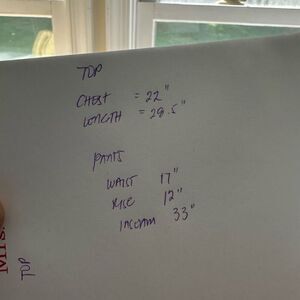 TOP
CHEST = 22"
LENGTH = 28.5"
PANTS
WAIST 17"
RISE 12"
INSEAM 33"
TOP